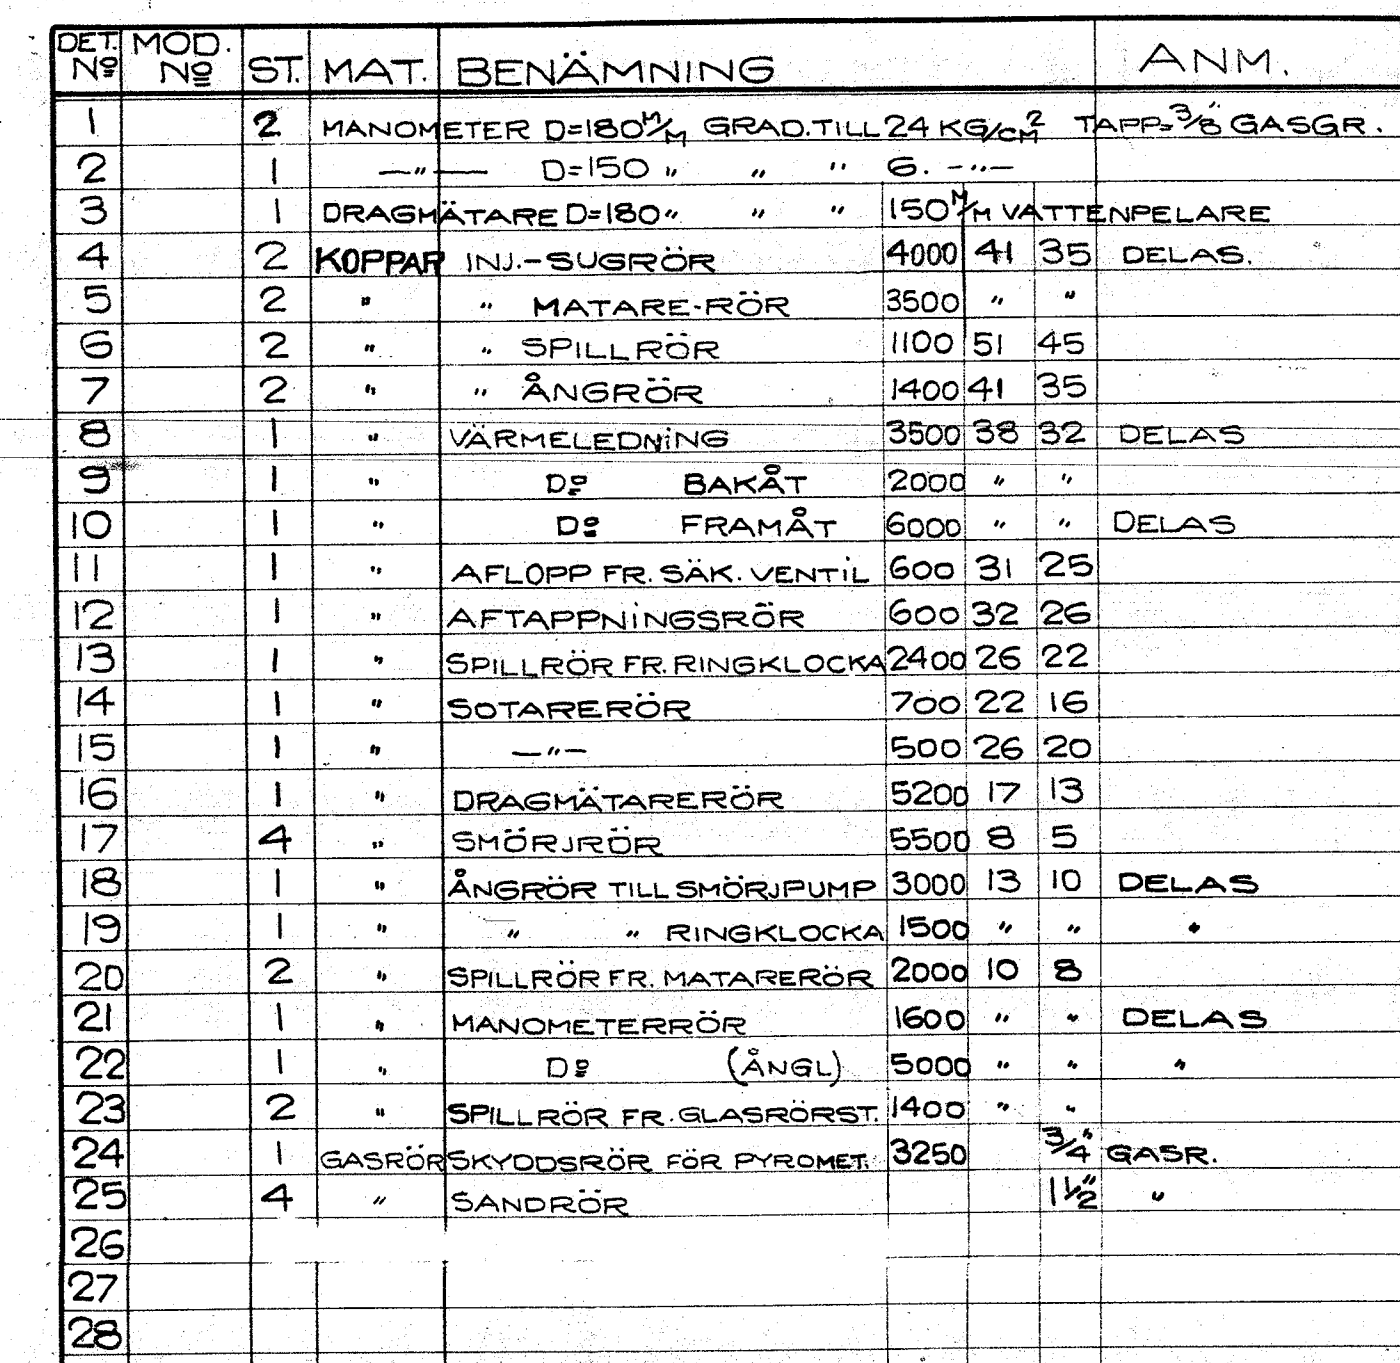 DET. Nº MOD. Nº ST. MAT. BENÄMNING ANM.
1 2 MANOMETER D=180 M/M GRAD. TILL 24 KG/CM² TAPP=3/8" GASGR.
2 1 —"— D=150 " " " 6. —"—
3 1 DRAGMÄTARE D=180 " " " 150 M/M VATTENPELARE
4 2 KOPPAR INJ.-SUGRÖR 4000 41 35 DELAS.
5 2 " " MATARE-RÖR 3500 " "
6 2 " " SPILLRÖR 1100 51 45
7 2 " " ÅNGRÖR 1400 41 35
8 1 " VÄRMELEDNING 3500 38 32 DELAS
9 1 " Dº BAKÅT 2000 " "
10 1 " Dº FRAMÅT 6000 " " DELAS
11 1 " AFLOPP FR. SÄK. VENTIL 600 31 25
12 1 " AFTAPPNINGSRÖR 600 32 26
13 1 " SPILLRÖR FR. RINGKLOCKA 2400 26 22
14 1 " SOTARERÖR 700 22 16
15 1 " —"— 500 26 20
16 1 " DRAGMÄTARERÖR 5200 17 13
17 4 " SMÖRJRÖR 5500 8 5
18 1 " ÅNGRÖR TILL SMÖRJPUMP 3000 13 10 DELAS
19 1 " " " RINGKLOCKA 1500 " " "
20 2 " SPILLRÖR FR. MATARERÖR 2000 10 8
21 1 " MANOMETERRÖR 1600 " " DELAS
22 1 " Dº (ÅNGL) 5000 " " "
23 2 " SPILLRÖR FR. GLASRÖRST. 1400 " "
24 1 GASRÖR SKYDDSRÖR FÖR PYROMET. 3250 3/4" GASR.
25 4 " SANDRÖR 1 1/2" "
26
27
28